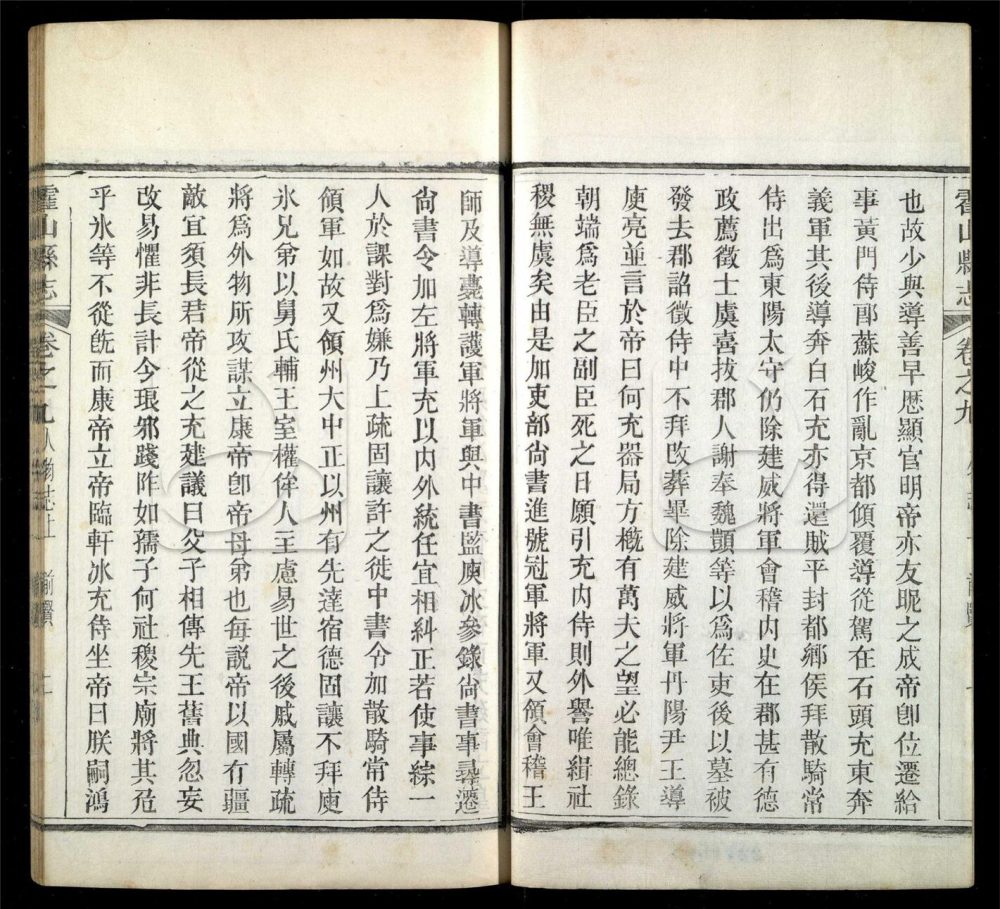 霍山縣志 卷之九
也故少與導善早歷顯官明帝亦友昵之成帝卽位遷給
事黃門侍郎蘇峻作亂京都傾覆導從駕在石頭充東奔
義軍其後導奔白石充亦得還賊平封都鄉侯拜散騎常
侍出爲東陽太守仍除建威將軍會稽內史在郡甚有德
政薦徵士虞喜拔郡人謝奉魏顗等以爲佐吏後以墓被
發去郡詔徵侍中不拜改葬畢除建威將軍丹陽尹王導
庾亮並言於帝曰何充器局方槪有萬夫之望必能總錄
朝端爲老臣之副臣死之日願引充內侍則外譽唯緝社
稷無虞矣由是加吏部尙書進號冠軍將軍又領會稽王
師及導薨轉護軍將軍與中書監庾冰參錄尙書事尋遷
尙書令加左將軍充以內外統任宜相糾正若使事綜一
人於課對爲嫌乃上疏固讓許之徙中書令加散騎常侍
領軍如故又領州大中正以州有先達宿德固讓不拜庾
氷兄弟以舅氏輔王室權侔人主慮易世之後戚屬轉疏
將爲外物所攻謀立康帝卽帝母弟也每說帝以國有彊
敵宜須長君帝從之充建議曰父子相傳先王舊典忽妄
改易懼非長計今琅邪踐阼如孺子何社稷宗廟將其危
乎氷等不從旣而康帝立帝臨軒冰充侍坐帝曰朕嗣鴻
霍山縣志 卷之九 人物志上